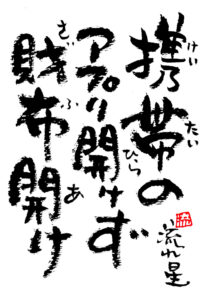 携帯の
アプリ開けず
財布開け
けい
たい
ひら
さい
ふ
あ
流れ星
流